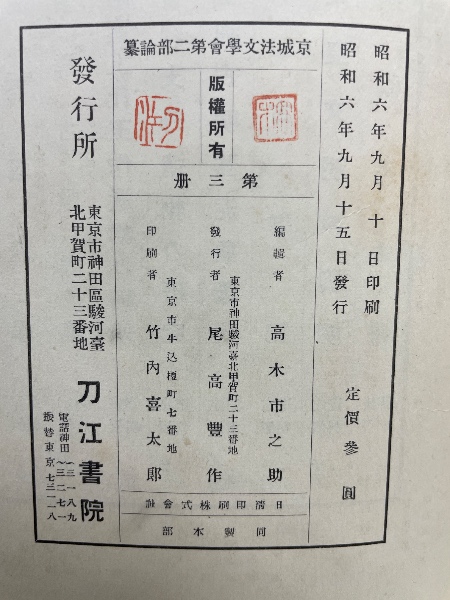 昭和六年九月十日印刷
昭和六年九月十五日發行
定價參圓
京城法文學會第二部論纂
版權所有
第三册
編輯者 高木市之助
東京市神田區駿河臺北甲賀町二十三番地
發行者 尾高豐作
東京市牛込榎町七番地
印刷者 竹內喜太郎
日淸印刷株式會社
同製本部
發行所
東京市神田區駿河臺
北甲賀町二十三番地
刀江書院
電話神田
振替東京七三二一八